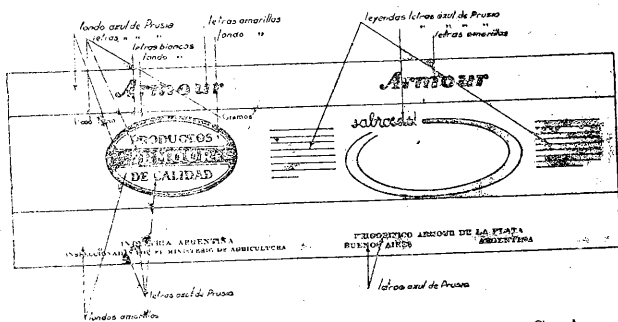 fondo azul de Prusia
letras " " "
letras blancas
fondo "
letras amarillas
fondo "
leyendas letras azul de Prusia
" " " "
letras amarillas
Armour
Armour
Gramos
sabrocidol
PRODUCTOS
ARMOUR
DE CALIDAD
INDUSTRIA ARGENTINA
INSPECCIONADO POR EL MINISTERIO DE AGRICULTURA
FRIGORIFICO ARMOUR DE LA PLATA
BUENOS AIRES ARGENTINA
letras azul de Prusia
letras azul de Prusia
fondos amarillos